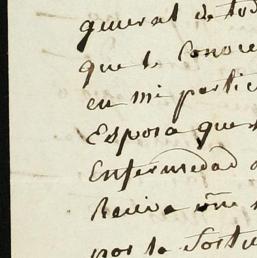 general de tod
que le Conoce
en mi partic
Esposa que
Enfermedad
Reciva
por la Fortu